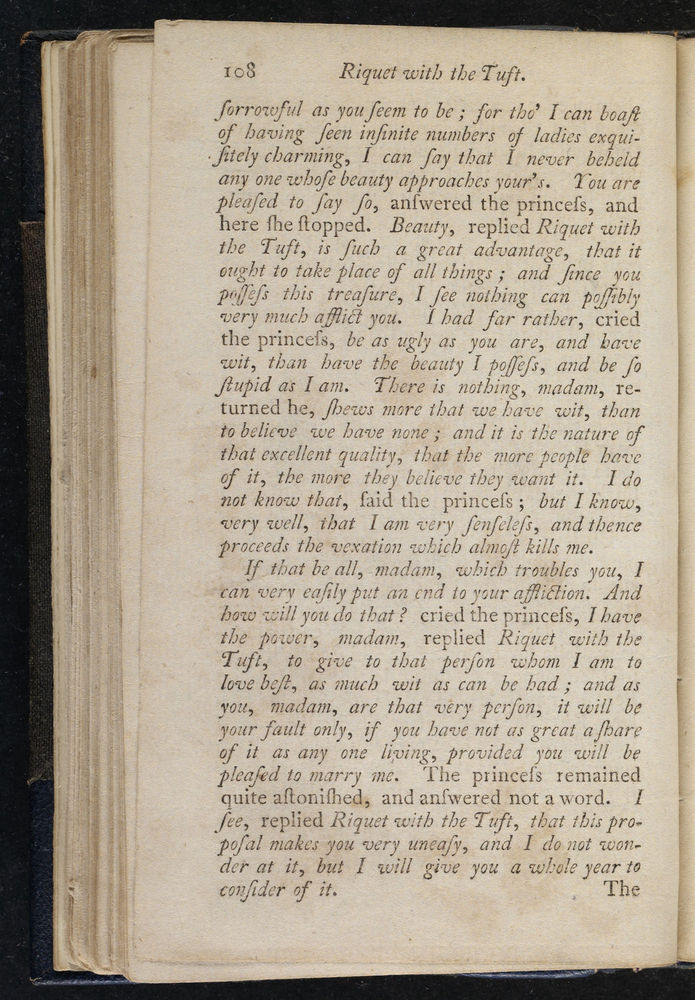 108 Riquet with the Tuft.
ſorrowful as you ſeem to be ; for tho' I can boaſt
of having ſeen infinite numbers of ladies exqui-
ſitely charming, I can ſay that I never beheld
any one whoſe beauty approaches your's. You are
pleaſed to ſay ſo, anſwered the princeſs, and
here ſhe ſtopped. Beauty, replied Riquet with
the Tuft, is ſuch a great advantage, that it
ought to take place of all things ; and ſince you
poſſeſs this treaſure, I ſee nothing can poſſibly
very much afflict you. I had far rather, cried
the princeſs, be as ugly as you are, and have
wit, than have the beauty I poſſeſs, and be ſo
ſtupid as I am. There is nothing, madam, re-
turned he, ſhews more that we have wit, than
to believe we have none ; and it is the nature of
that excellent quality, that the more people have
of it, the more they believe they want it. I do
not know that, ſaid the princeſs ; but I know,
very well, that I am very ſenſeleſs, and thence
proceeds the vexation which almoſt kills me.
If that be all, madam, which troubles you, I
can very eaſily put an end to your affliction. And
how will you do that ? cried the princeſs, I have
the power, madam, replied Riquet with the
Tuft, to give to that perſon whom I am to
love beſt, as much wit as can be had ; and as
you, madam, are that very perſon, it will be
your fault only, if you have not as great a ſhare
of it as any one living, provided you will be
pleaſed to marry me. The princeſs remained
quite aſtoniſhed, and anſwered not a word. I
ſee, replied Riquet with the Tuft, that this pro-
poſal makes you very uneaſy, and I do not won-
der at it, but I will give you a whole year to
conſider of it. The